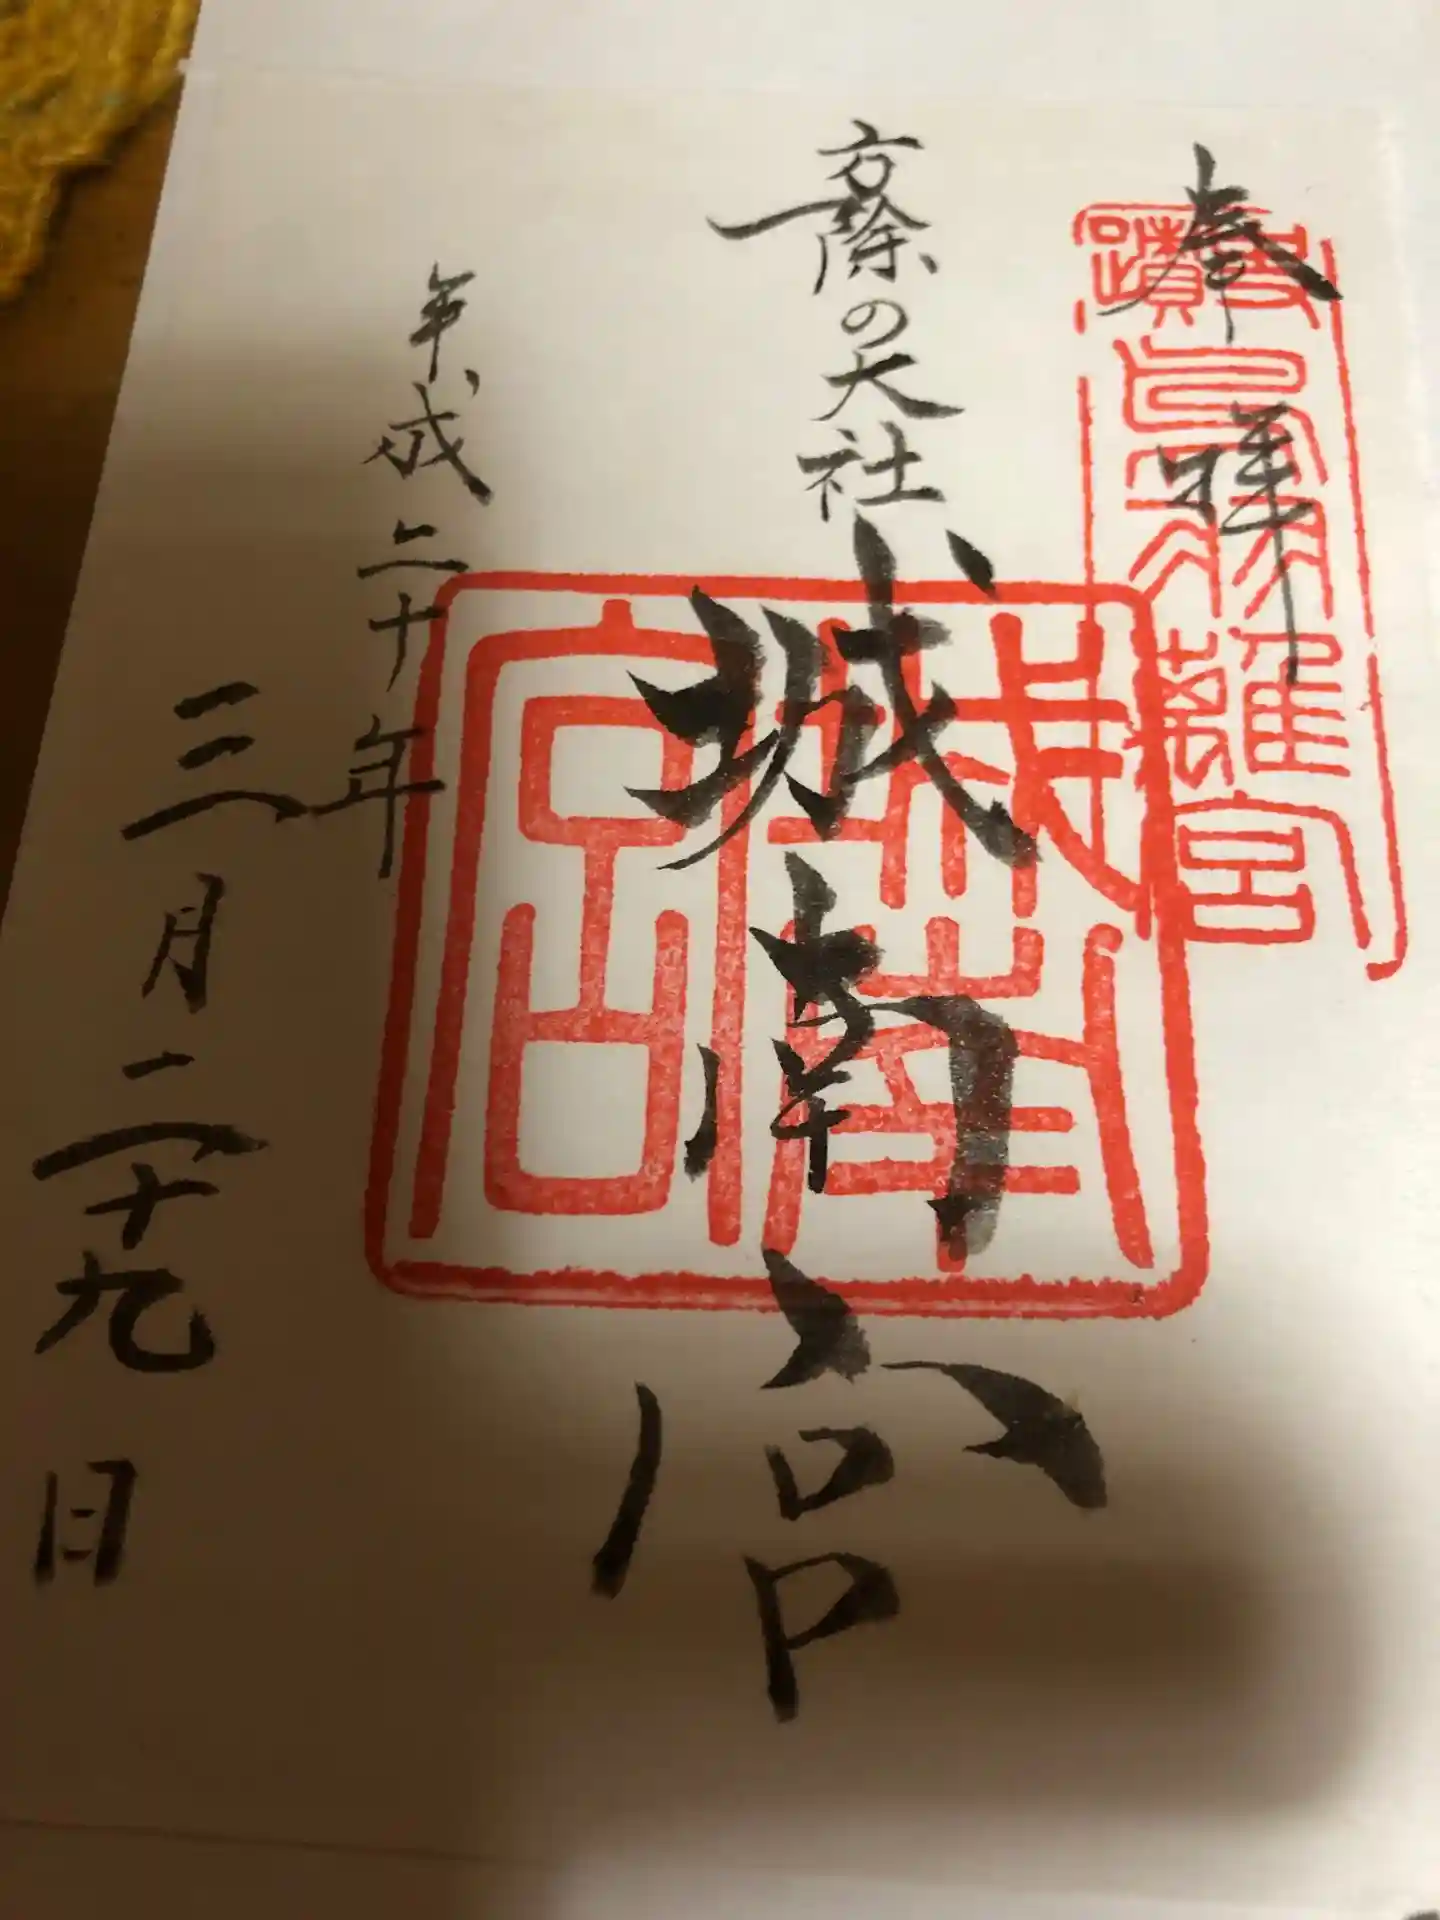 奉拝
史蹟鳥羽離宮
方除の大社
城南宮
城南宮
平成二十年
三月二十九日